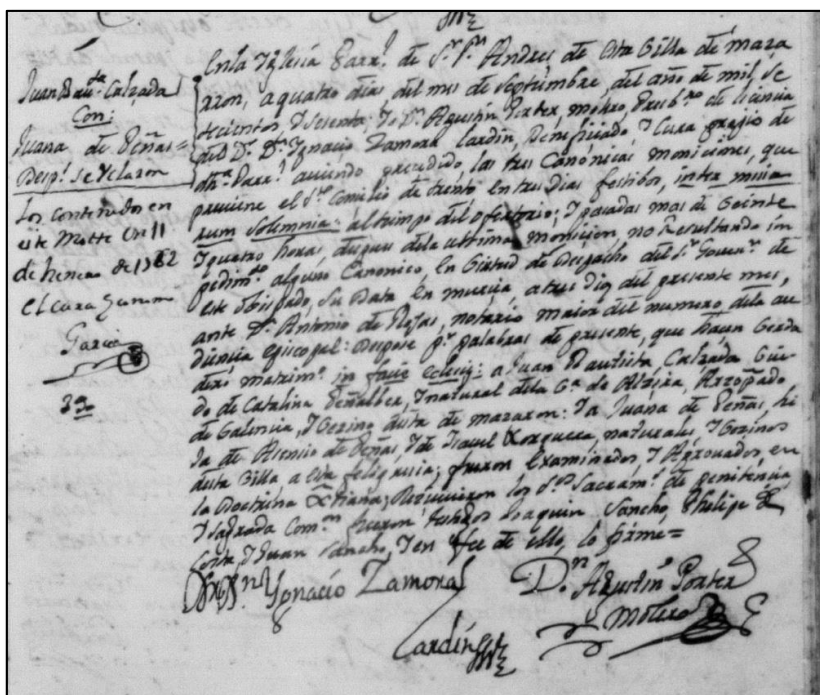 Juan Bau.ta Calzada
Con:
Juana de Peñas=
Desp.s se Velaron
Los contenidos en
este Matte en 11
de henero de 1762
el cura
Garcia
En la Yglesia Parr.l de S.r S.n Andres de esta Billa de Maza
rron, a quatro dias del mes de Septiembre, del año de mil, se
tecientos, y sesenta; Yo D.n Agustin Porter, molero, Presb.ro de licencia
del D.r D.n Ygnacio Zamora Cardin, Beneficiado y Cura propio de
dh.a Parr.l aviendo precedido las tres Canonicas moniciones, que
previene el S.to Concilio de trento En tres dias festibos, inter missa
rum solemnia: al tiempo del ofertorio; y pasadas mas de Veinte
y quatro horas, despues de la ultima monicion no Resultando im
pedim.to alguno Canonico, en Virtud de Despacho del S.r Govern.r de
este Obispado, su data en murcia a tres dias del presente mes,
ante D.n Antonio de Rojas, notario maior del numero de la au
diencia episcopal: Despose p.r palabras de presente, que hacen Verda
dero matrim.o in facie eclesię: a Juan Bautista Calzada Viu
do de Catalina Peñalber, y natural de la C.a de Alzira, Arzobpado
de Valencia, y Vezino desta de mazarron: Ya Juana de Peñas, hi
ja de Asensio de Peñas, y de Ysavel naturales y Vezinos
desta Billa a esta feligresia; fueron examinados, y Aprovados, en
la Doctrina Xptiana; Recivieron los S.tos Sacram.tos de penitencia,
y sagrada Com.on fueron testigos Joaquin Sancho, Phelipe de
Coria, y Juan Sancho, y en fee de ello, lo firme=
D.r D.n Ygnacio Zamora
Cardin
D.n Agustin Porter
Molero